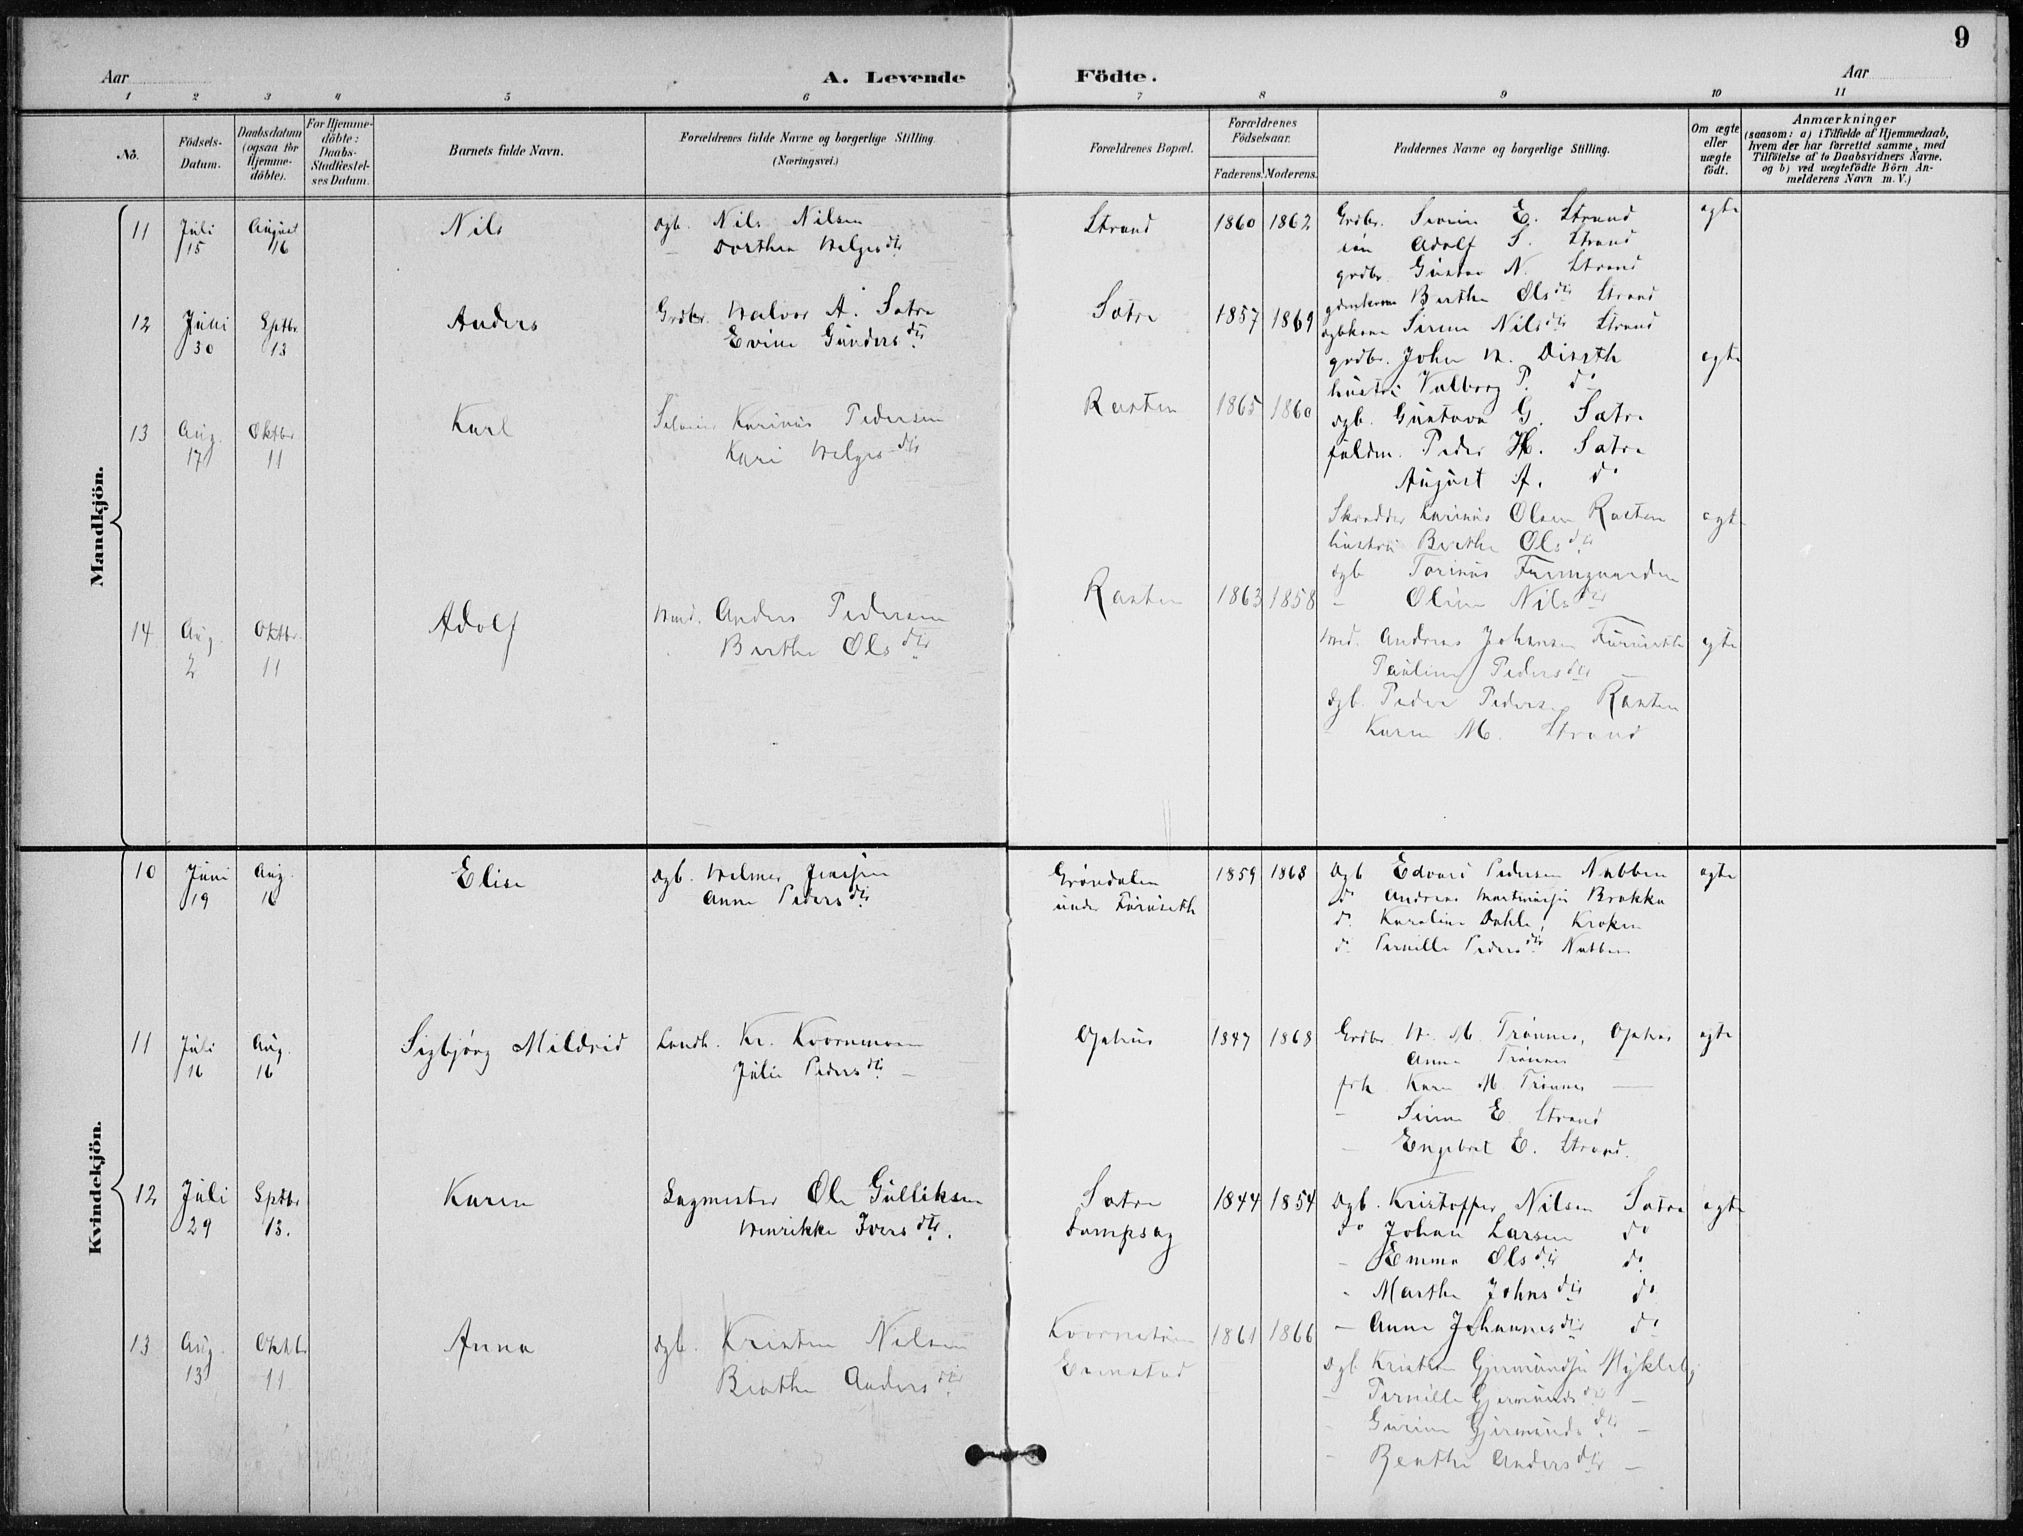 9
Aar
A. Levende Födte.
Aar
1 2 3 4 5 6 7 8 9 10 11
No.
Födsels-Datum.
Daabsdatum (ogsaa för Hjemme-döbte).
For Hjemme-döbte: Daabs-Stadfæstel-ses Datum.
Barnets fulde Navn.
Forældrenes fulde Navne og borgerlige Stilling (Næringsvei.)
Forældrenes Bopæl.
Forældrenes Födselsaar.
Faderens. Moderens.
Faddernes Navne og borgerlige Stilling.
Om ægte eller uægte födt.
Anmærkninger
(saasom: a) i Tilfælde af Hjemmedaab,
hvem der har forrettet samme, med
Tilföielse af to Daabsvidners Navne.
og b) ved uægtefödte Börn An-
melderens Navn m. V.)
Mandkjön.
11 Juli 15 August 16 Nils
Dgb. Nils Nilsen
Dorthea Helgesdtr
Strand 1860 1862
Grdbr. Severin E. Strand
Adolf S. Strand
grdbr. Gustav N. Strand
Berthe Olsdtr Strand
Sirene Nilsdtr Strand
ægte
12 Juli 30 Septbr 13 Anders
Grdbr. Halvor A. Sætre
Evine Gundersdtr
Sætre 1857 1869
grdbr. John H. Diseth
hustru Valborg P. do
dgb. Gustava G. Sætre
Peder H. Sætre
August A. do
ægte
13 Aug. 17 Oktbr 11 Karl
Karinus Pedersen
Kari Helgesdtr
Rasten 1865 1860
Skrædder Karinus Olsen Rasten
hustru Berthe Olsdtr
dgb Torinus Furugaarden
– Oline Nilsdtr
ægte
14 Aug. 2 Oktbr. 11 Adolf
Hmd. Anders Pedersen
Berthe Olsdtr
Rasten 1863 1858
Hmd. Andreas Johansen Furuseth
Pauline Pedersdtr –
Dgb. Peder Pedersen Rasten
– Karen M. Strand
ægte
Kvindekjön.
10 Juni 19 Aug. 16 Elise
Dgb. Helmer Jensen
Anne Pedersdtr
Gröndalen
under Furuseth
1859 1868
Dgb Edvard Pedersen Nabben
do Andreas Martinusen Brakka
do Karoline Dahle, Kroken
do Pernille Pedersdtr Nabben
ægte
11 Juli 16 Aug. 16 Sigbjörg Mildrid
Landh. Kr. Kvernmoen
Julie Pedersdtr –
Ophus 1847 1868
Grdbr. H. M. Trönnes, Ophus
Anne Trönnes –
frk. Karen M. Trönnes –
– Sirene E. Strand
– Engebret E. Strand.
ægte
12 Juli 29 Septbr 13. Karen
Sagmester Ole Gulliksen
Henrikke Iversdtr.
Sætre
Dampsag
1844 1854
Dgb. Kristoffer Nilsen Sætre
do Johan Larsen do
– Emma Olsdtr do
– Marthe Johnsdtr do
– Anne Johannesdtr do
ægte
13 Aug. 13 Oktbr 11 Anna
dgb. Kristen Nilsen
Berthe Andersdtr
Evenstad
1861 1866
Dgb Kristian Gjermundsen Mykleby
– Pernille Gjermundsdtr –
– Gurine Gjermundsdtr –
– Berthe Andersdtr –